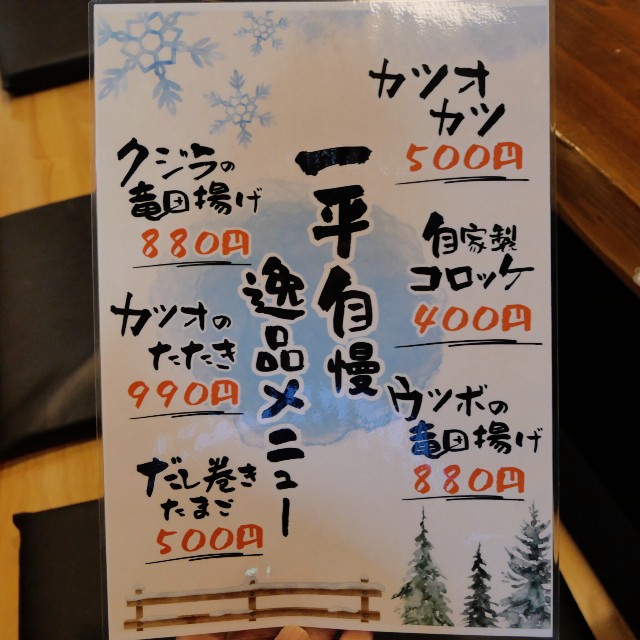 カツオ
カツ
500円
自家製
コロッケ
400円
ウツボの
竜田揚げ
880円
一平自慢
逸品メニュー
クジラの
竜田揚げ
880円
カツオの
たたき
990円
だし巻き
たまご
500円